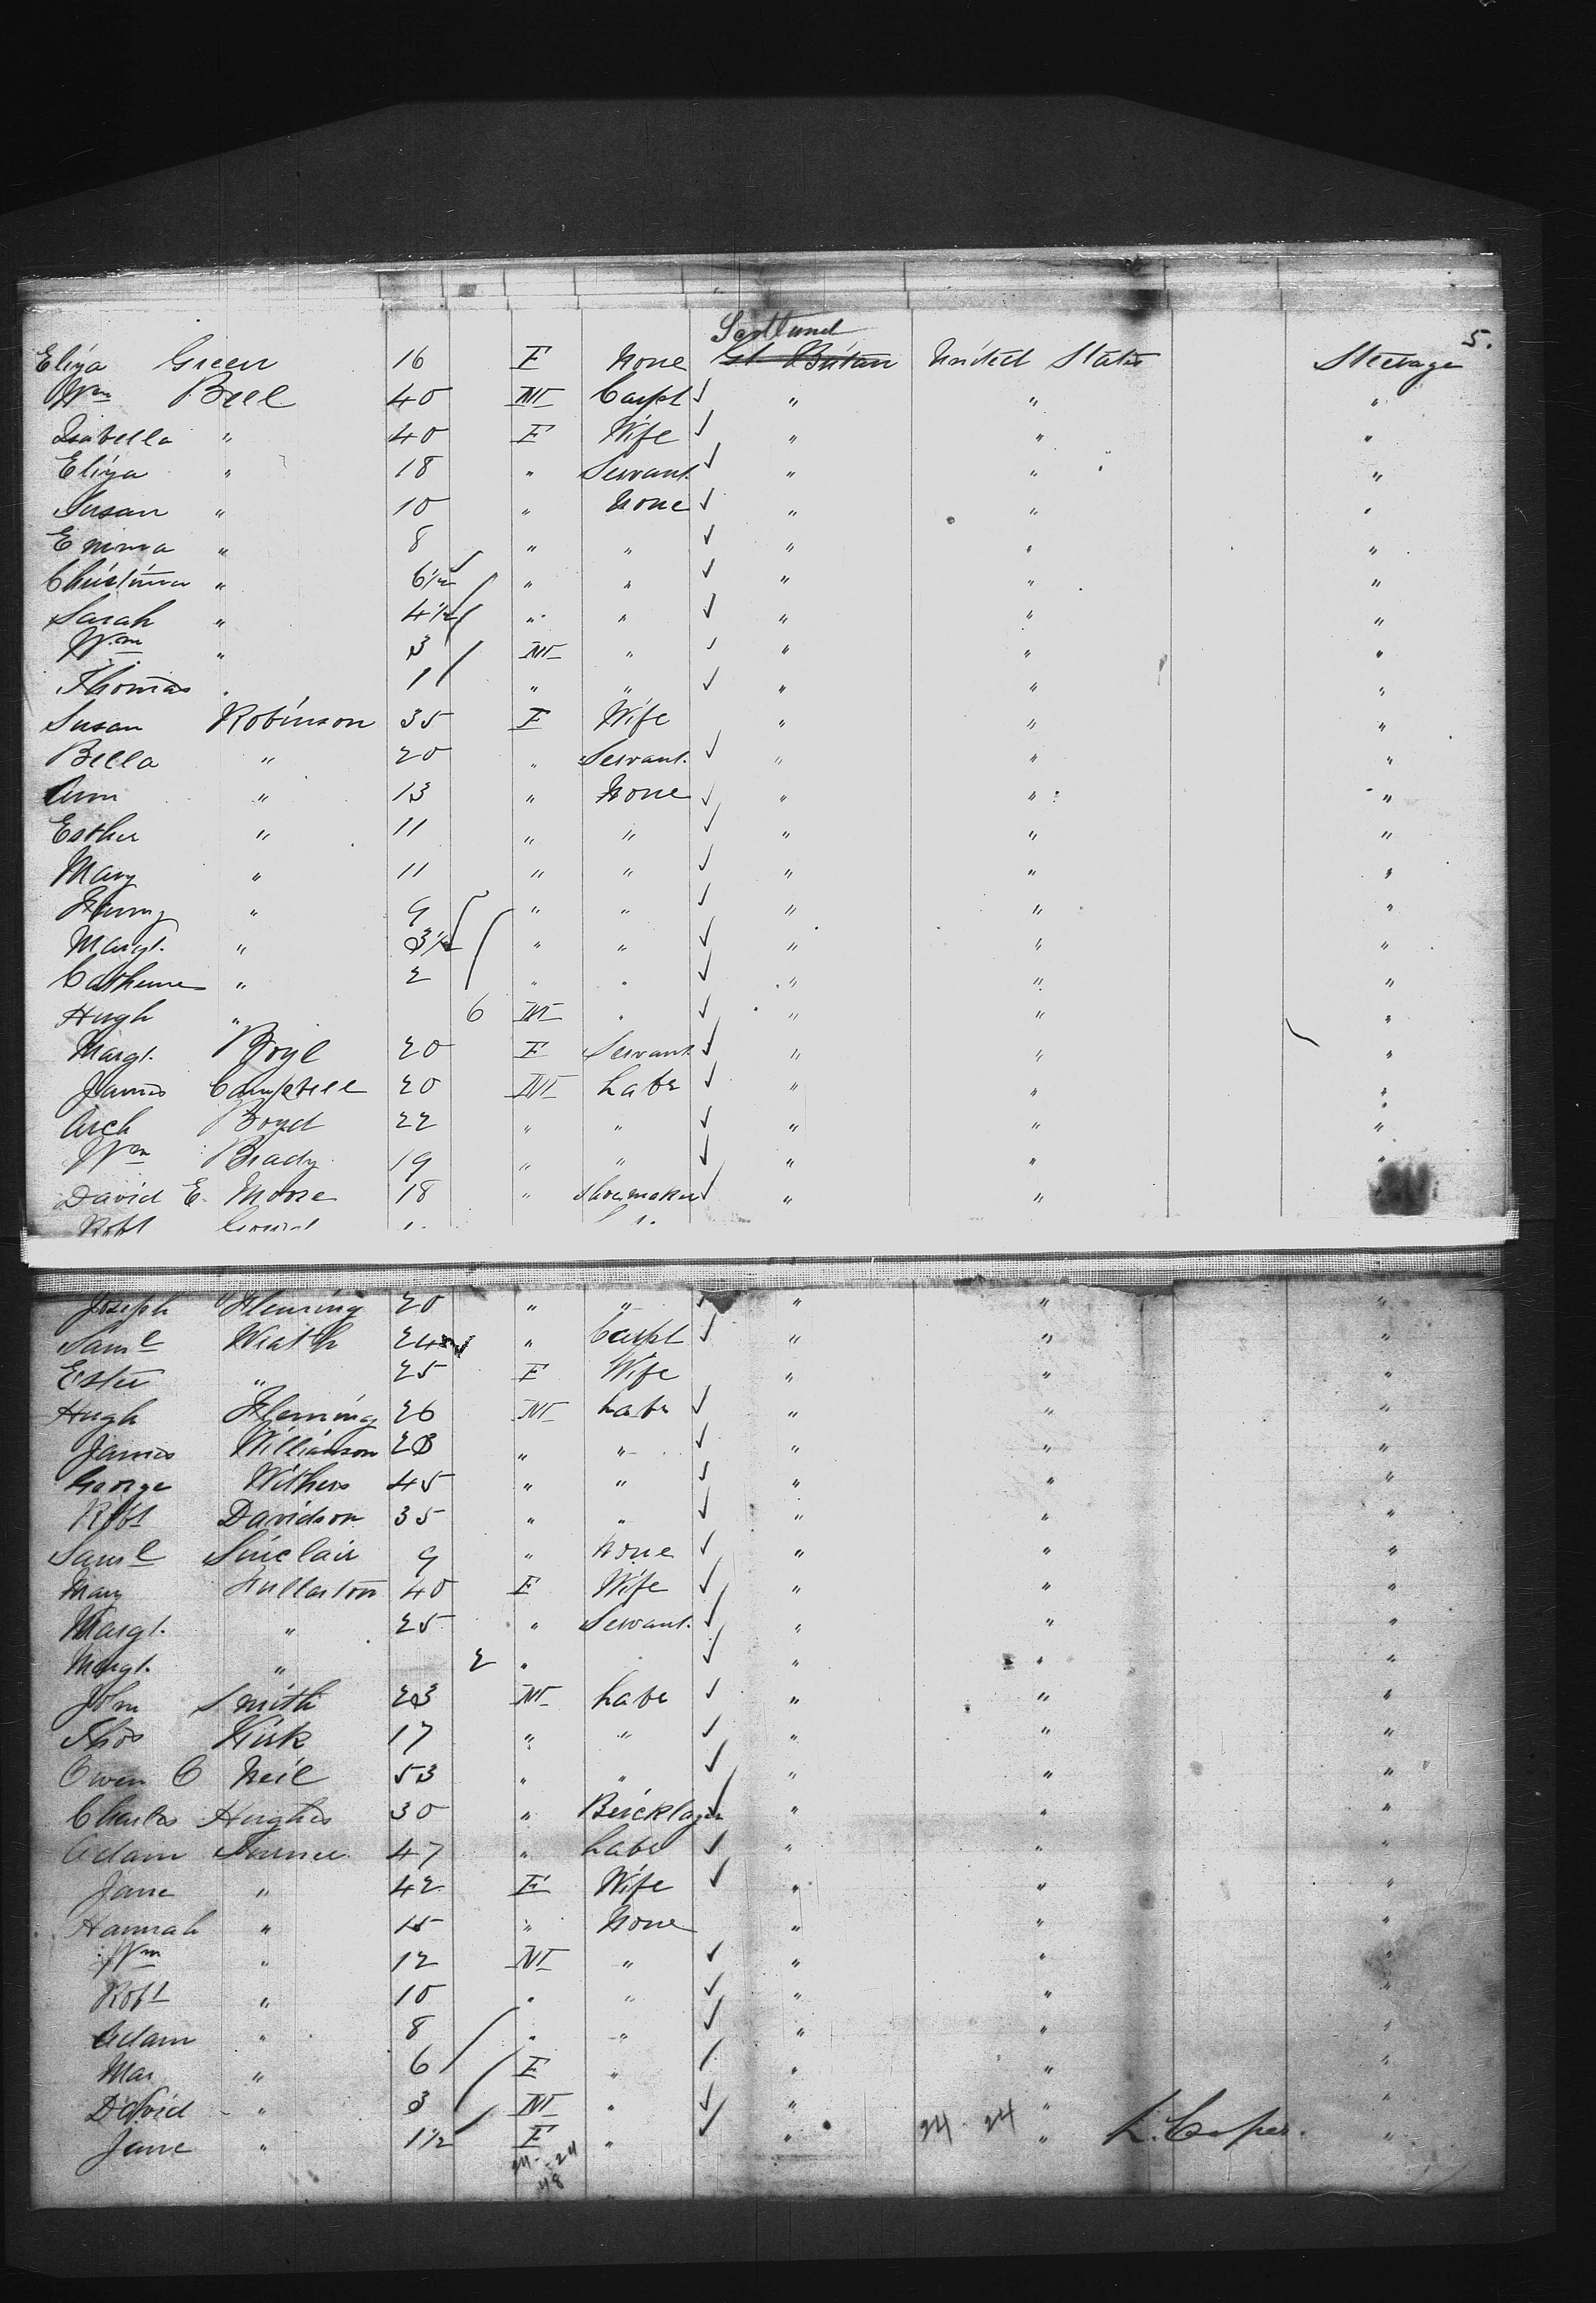 5.
Scotland
Eliza Green 16 F None Gt Britan United States Steerage
Wm Bell 40 M Carpt ✓ " " "
Isabella " 40 F Wife ✓ " " "
Eliza " 18 " Servant ✓ " " "
Susan " 10 " None ✓ " " "
Emma " 8 " " ✓ " " "
Christina " 6 1/2 " " ✓ " " "
Sarah " 4 1/2 " " ✓ " " "
Wm " 3 M " ✓ " " "
Thomas " 1 " " ✓ " " "
Susan Robinson 35 F Wife " " "
Bella " 20 " Servant ✓ " " "
Ann " 13 " None ✓ " " "
Esther " 11 " " ✓ " " "
Mary " 11 " " ✓ " " "
Fanny " 9 " " ✓ " " "
Margt. " 3 1/2 " " ✓ " " "
Catherine " 2 " " ✓ " " "
Hugh " 6 M " ✓ " " "
Margt. Boyl 20 F Servant ✓ " " "
James Campbell 20 M Labr ✓ " " "
Arch Boyd 22 " " ✓ " " "
Wm Brady 19 " " ✓ " " "
David E. Moore 18 " Shoemaker ✓ " "
Robt
Joseph Fleming 20 " " ✓ " " "
Saml Wrath 24 " Carpt ✓ " " "
Ester " 25 F Wife " " "
Hugh Fleming 26 M Labr ✓ " " "
James Williamson 23 " " ✓ " " "
George Withers 45 " " ✓ " " "
Robt Davidson 35 " " ✓ " " "
Saml Sinclair 9 " None ✓ " " "
Mary Fullarton 40 F Wife ✓ " " "
Margt. " 25 " Servant ✓ " " "
Margt. " 2 " ✓ " " "
John Smith 23 M Labr ✓ " " "
Thos Kirk 17 " " ✓ " " "
Owen O Neil 53 " " ✓ " " "
Charles Hughes 30 " Bricklayer ✓ " " "
Adam 47 " Labr ✓ " " "
Jane " 42 F Wife ✓ " " "
Hannah " 15 " None " " "
Wm " 12 M " ✓ " " "
Robt " 10 " " ✓ " " "
Adam " 8 " " ✓ " " "
Mar " 6 F " ✓ " " "
David " 3 M " ✓ " " "
Jane " 1 1/2 F " ✓ " 24 - 24 " "
24 - 24
48